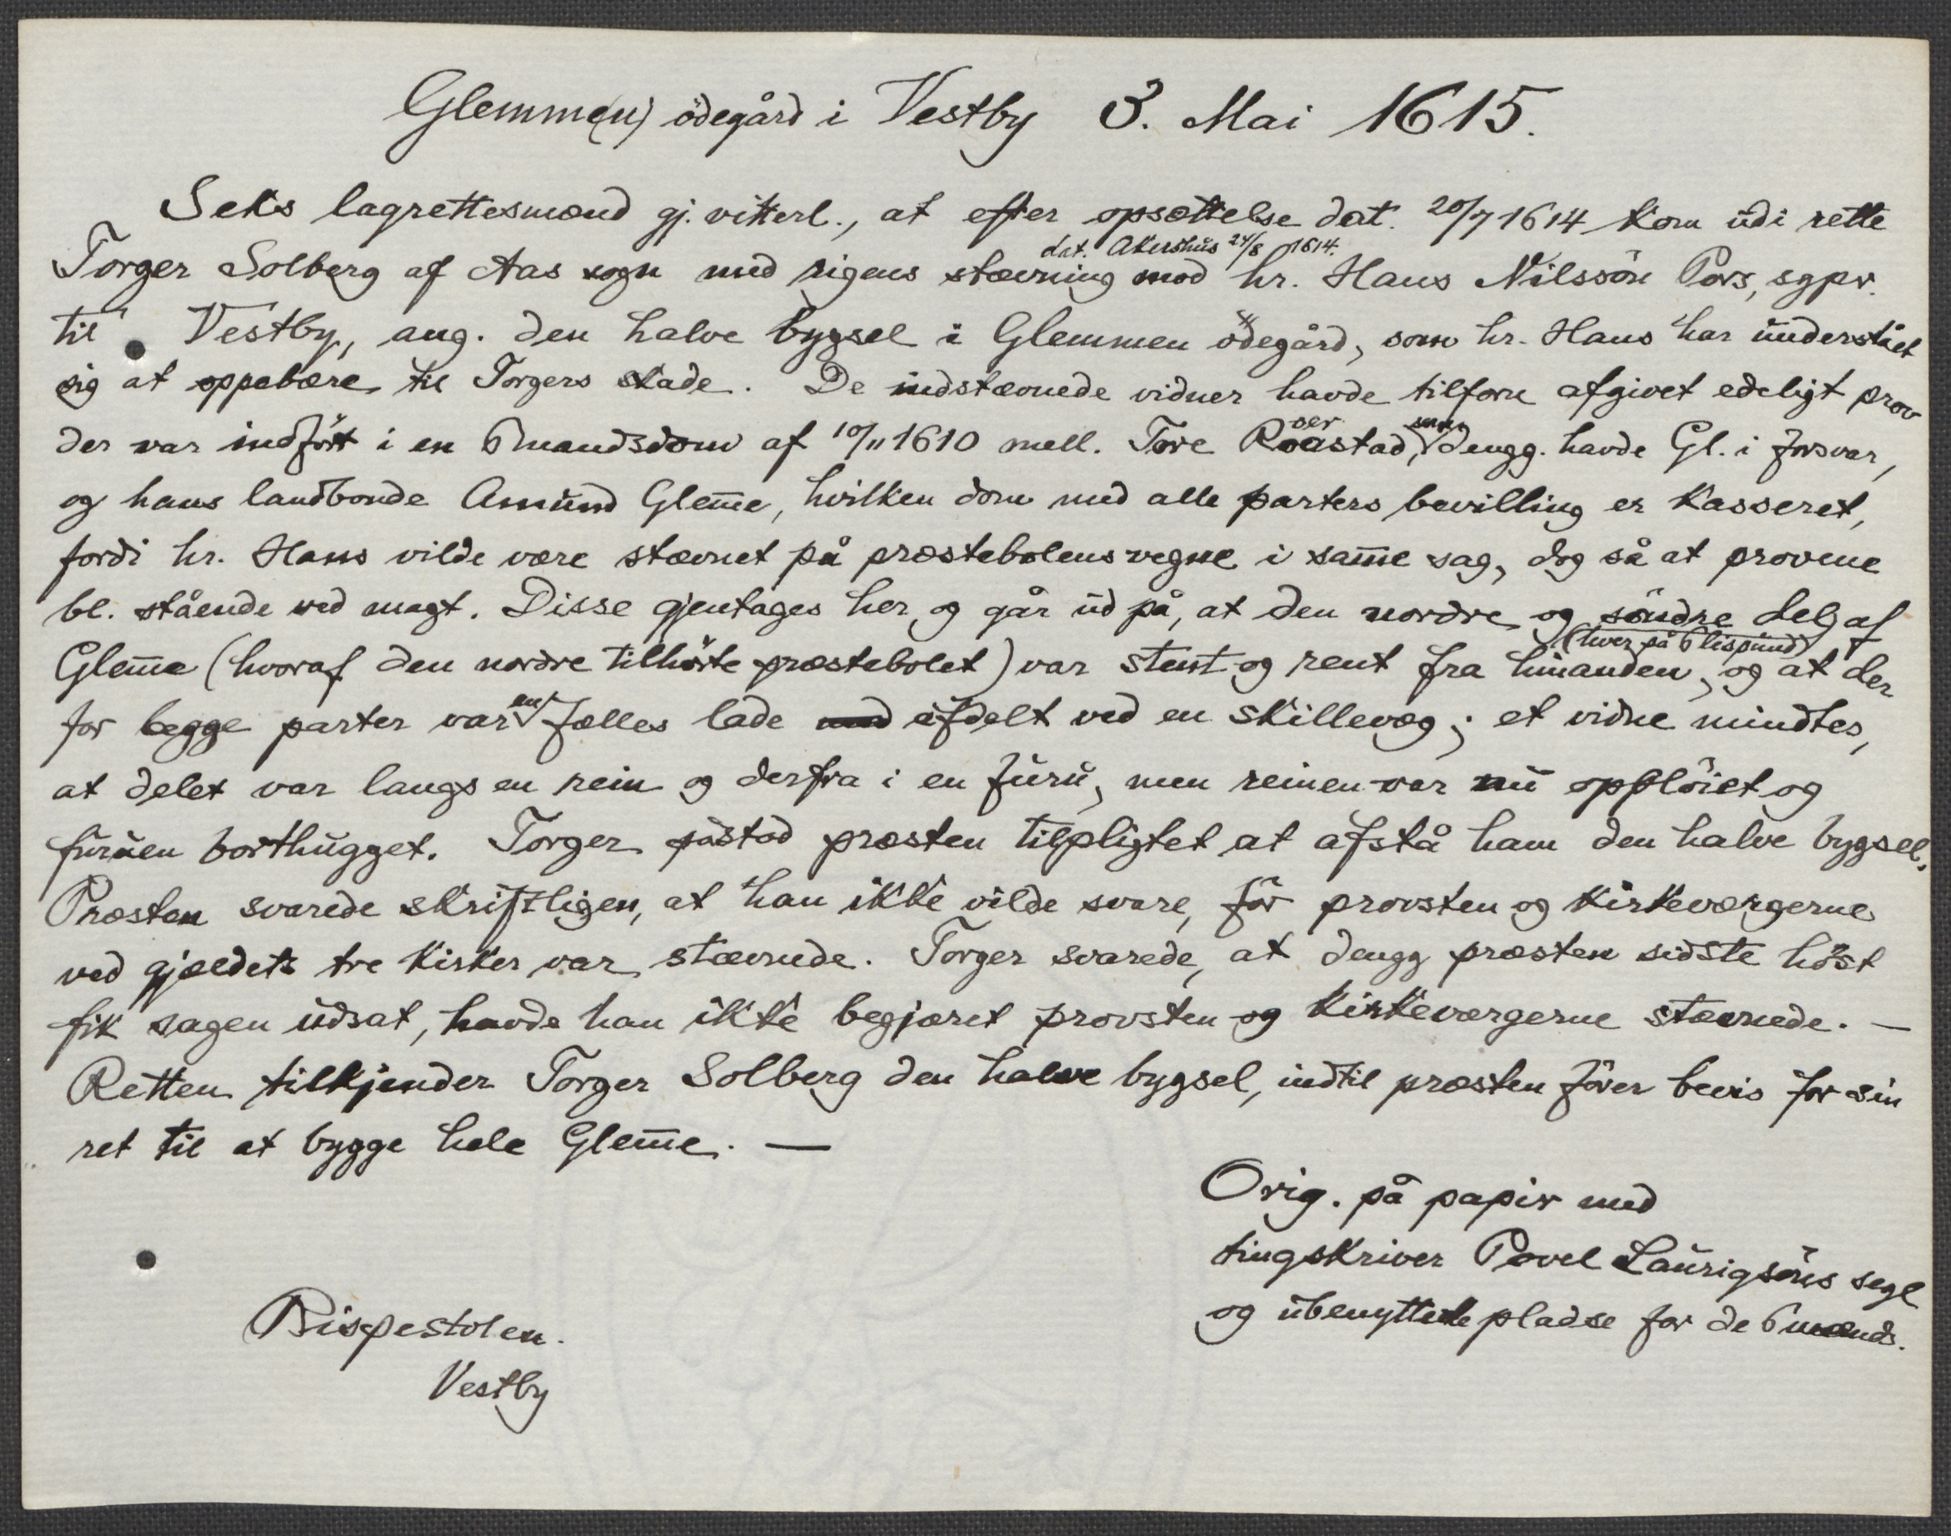 Glemme(n) ödegård i Vestby 3. Mai 1615.
Seks lagrettesmænd gj. vitterl., at efter opsættelse dat. 20/7 1614 kom udi rette
dat. Akershus 24/8 1614.
Torger Solberg af Aas sogn med rigens stævning mod hr. Hans Nilssön Pors, sgpr.
til Vestby, ang. den halve bygsel i Glemmen ödegård, som hr. Hans har understået
sig at oppebære til Torgers skade. De indstævnede vidner havde tilforn afgivet edeligt prov
der var indfört i en 6mandsdom af 10/11 1610 mell. Tore Roerstad, som dengg. havde Gl. i forsvar,
og hans landbonde Amund Glem̅e, hvilken dom med alle parters bevilling er kasseret,
fordi hr. Hans vilde være stævnet på præstebolens vegne i sam̅e sag, dog så at provene
bl. stående ved magt. Disse gjentages her og går ud på, at den nordre og söndre del af
(hver på 6 lispund)
Glem̅e (hvoraf den nordre tilhörte præstebolet) var stent og rent fra hinanden, og at der
for begge parter var en fælles lade afdelt ved en skillevæg; et vidne mindtes,
at delet var langs en rein og derfra i en furu, men reinen var nu opplöiet og
furuen borthugget. Torger påstod præsten tilpligtet at afstå ham den halve bygsel.
Præsten svarede skriftligen, at han ikke vilde svare, för provsten og kirkeværgerne
ved gjældets tre kirker var stævnede. Torger svarede, at dengg præsten sidste höst
fik sagen udsat, havde han ikke begjæret provsten og kirkeværgerne stævnede. —
Retten tilkjender Torger Solberg den halve bygsel, indtil præsten förer bevis for sin
ret til at bygge hele Glem̅e. —
Orig. på papir med
tingskriver Povel Laurigsöns segl
og ubenyttede pladse for de 6 mænds.
Bispestolen.
Vestby